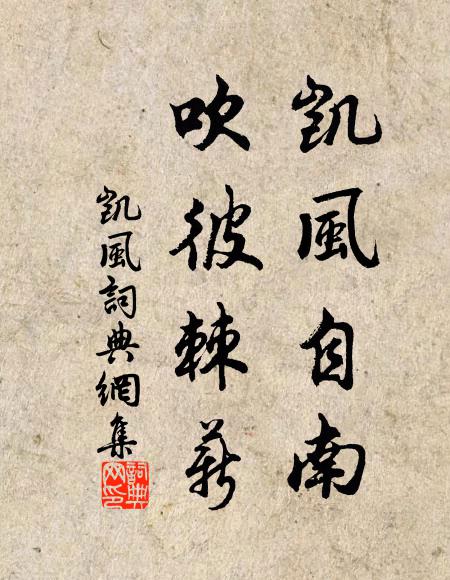 凱風自南
吹彼棘薪
凱風詞典網集
詞典網印